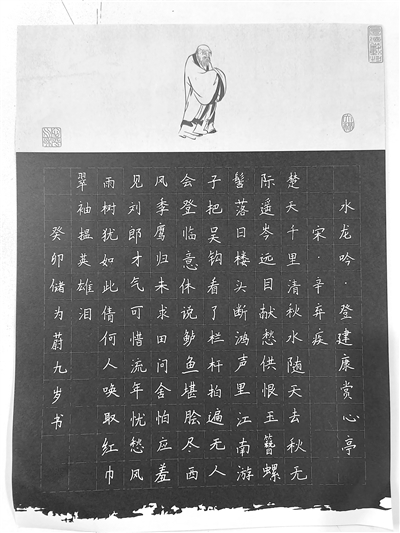 水龙吟·登建康赏心亭
宋·辛弃疾
楚天千里清秋水随天去秋无
际遥岑远目献愁供恨玉簪螺
髻落日楼头断鸿声里江南游
子把吴钩看了栏杆拍遍无人
会登临意休说鲈鱼堪脍尽西
风季鹰归未求田问舍怕应羞
见刘郎才气可惜流年忧愁风
雨树犹如此倩何人唤取红巾
翠袖揾英雄泪
癸卯储为蔚九岁书